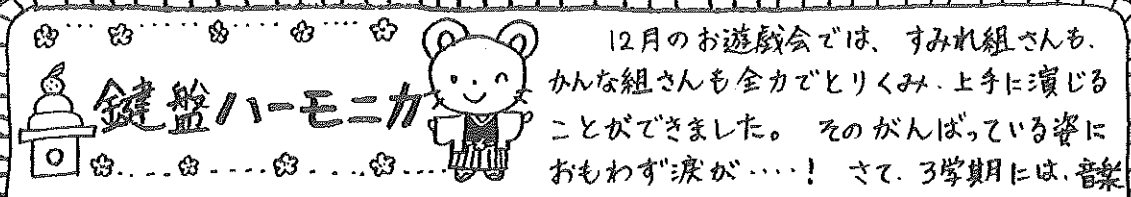 鍵盤ハーモニカ
12月のお遊戯会では、すみれ組さんも、
かんな組さんも全力でとりくみ、上手に演じる
ことができました。 そのがんばっている姿に
おもわず涙が‥‥! さて、3学期には、音楽